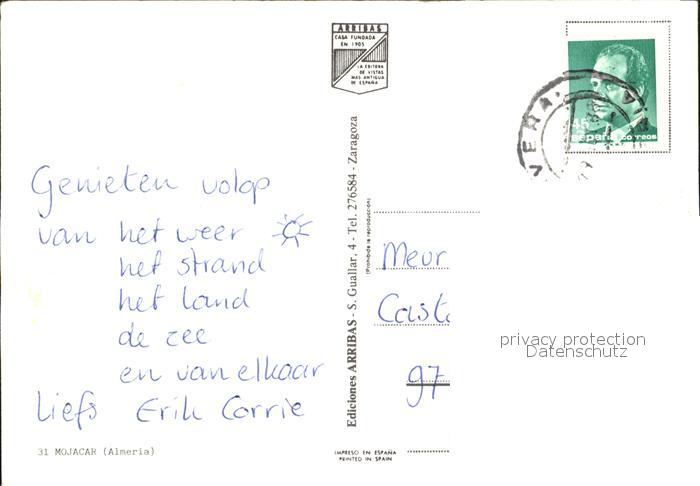 ARRIBAS
CASA FUNDADA
EN 1905
LA EDITORA
DE VISTAS
MAS ANTIGUA
DE ESPAÑA
45
España correos
VERA
Genieten volop
van het weer
het strand
het land
de zee
en van elkaar
Liefs Erik Corrie
31 MOJACAR (Almeria)
Ediciones ARRIBAS - S. Guallar, 4 - Tel. 276584 - Zaragoza
(Prohibida la reproducción)
IMPRESO EN ESPAÑA
PRINTED IN SPAIN
Meur
Cast
97
privacy protection
Datenschutz